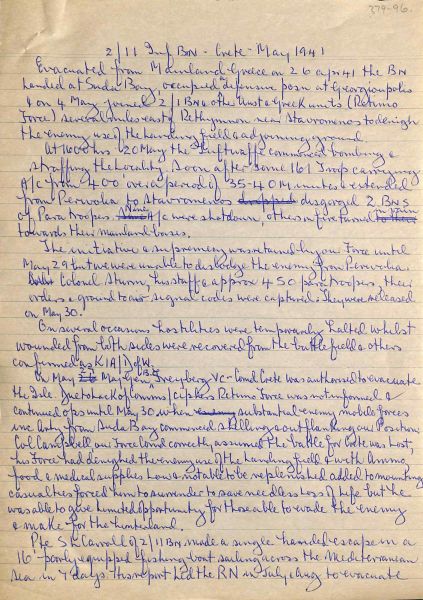 379-96.
2/11 Inf Bn - Crete - May 1941
Evacuated from Mainland Greece on 26 apr 41 the BN
landed at Suda Bay, occupied defensive posn at Georgioupolis
& on 4 May joined 2/1 BN & other Aust & Greek units (Retimo
Force) several miles east of Rethymnon near Stavromenos to denigh
the enemy use of the landing field & adjoining ground.
At 1600 hrs 20 May the Luftwaffe commenced bombing &
straffing the locality. Soon after some 161 Troop carrying
A/c from 400 over a period of 35-40 Minutes extended
from Perivolia to Stavromenos disgorged 2 BNS
of Paratroopes. A/c were shot down, others on fire turned
towards their mainland bases.
The initiative & supremacy was retained by our Force until
May 29 but we were unable to dislodge the enemy from Perivolia.
Colonel Sturm, his staff & approx 450 paratroopes, their
orders & ground to air signal codes were captured. They were released
on May 30.
On several occasions hostilities were temporarily halted whilst
wounded from both sides were recovered from the battlefield & others
confirmed as KIA/DofW.
On May Maj Gen Freyberg VC - Comd Crete was authorised to evacuate
the Isle. Due to lack of comms/ciphers Retimo Force was not informed &
continued ops until May 30 when substantial enemy mobile forces
inc Arty from Suda Bay commenced shelling & outflanking our Position
Col Campbell our Force Comd correctly assumed the battle for Crete was lost,
his Force had denighed the enemy use of the landing field & with Ammo,
food & medical supplies low & not able to be replenished added to mounting
casualties forced him to surrender to save needless loss of life but he
was able to give limited opportunity for those able to evade the enemy
& make for the hinterland.
Pte S L Carroll of 2/11 BN made a single handed escape in a
16' poorly equipped fishing boat sailing across the Mediterranean
Sea in 7 days. His report led the RN in July/Aug to evacuate